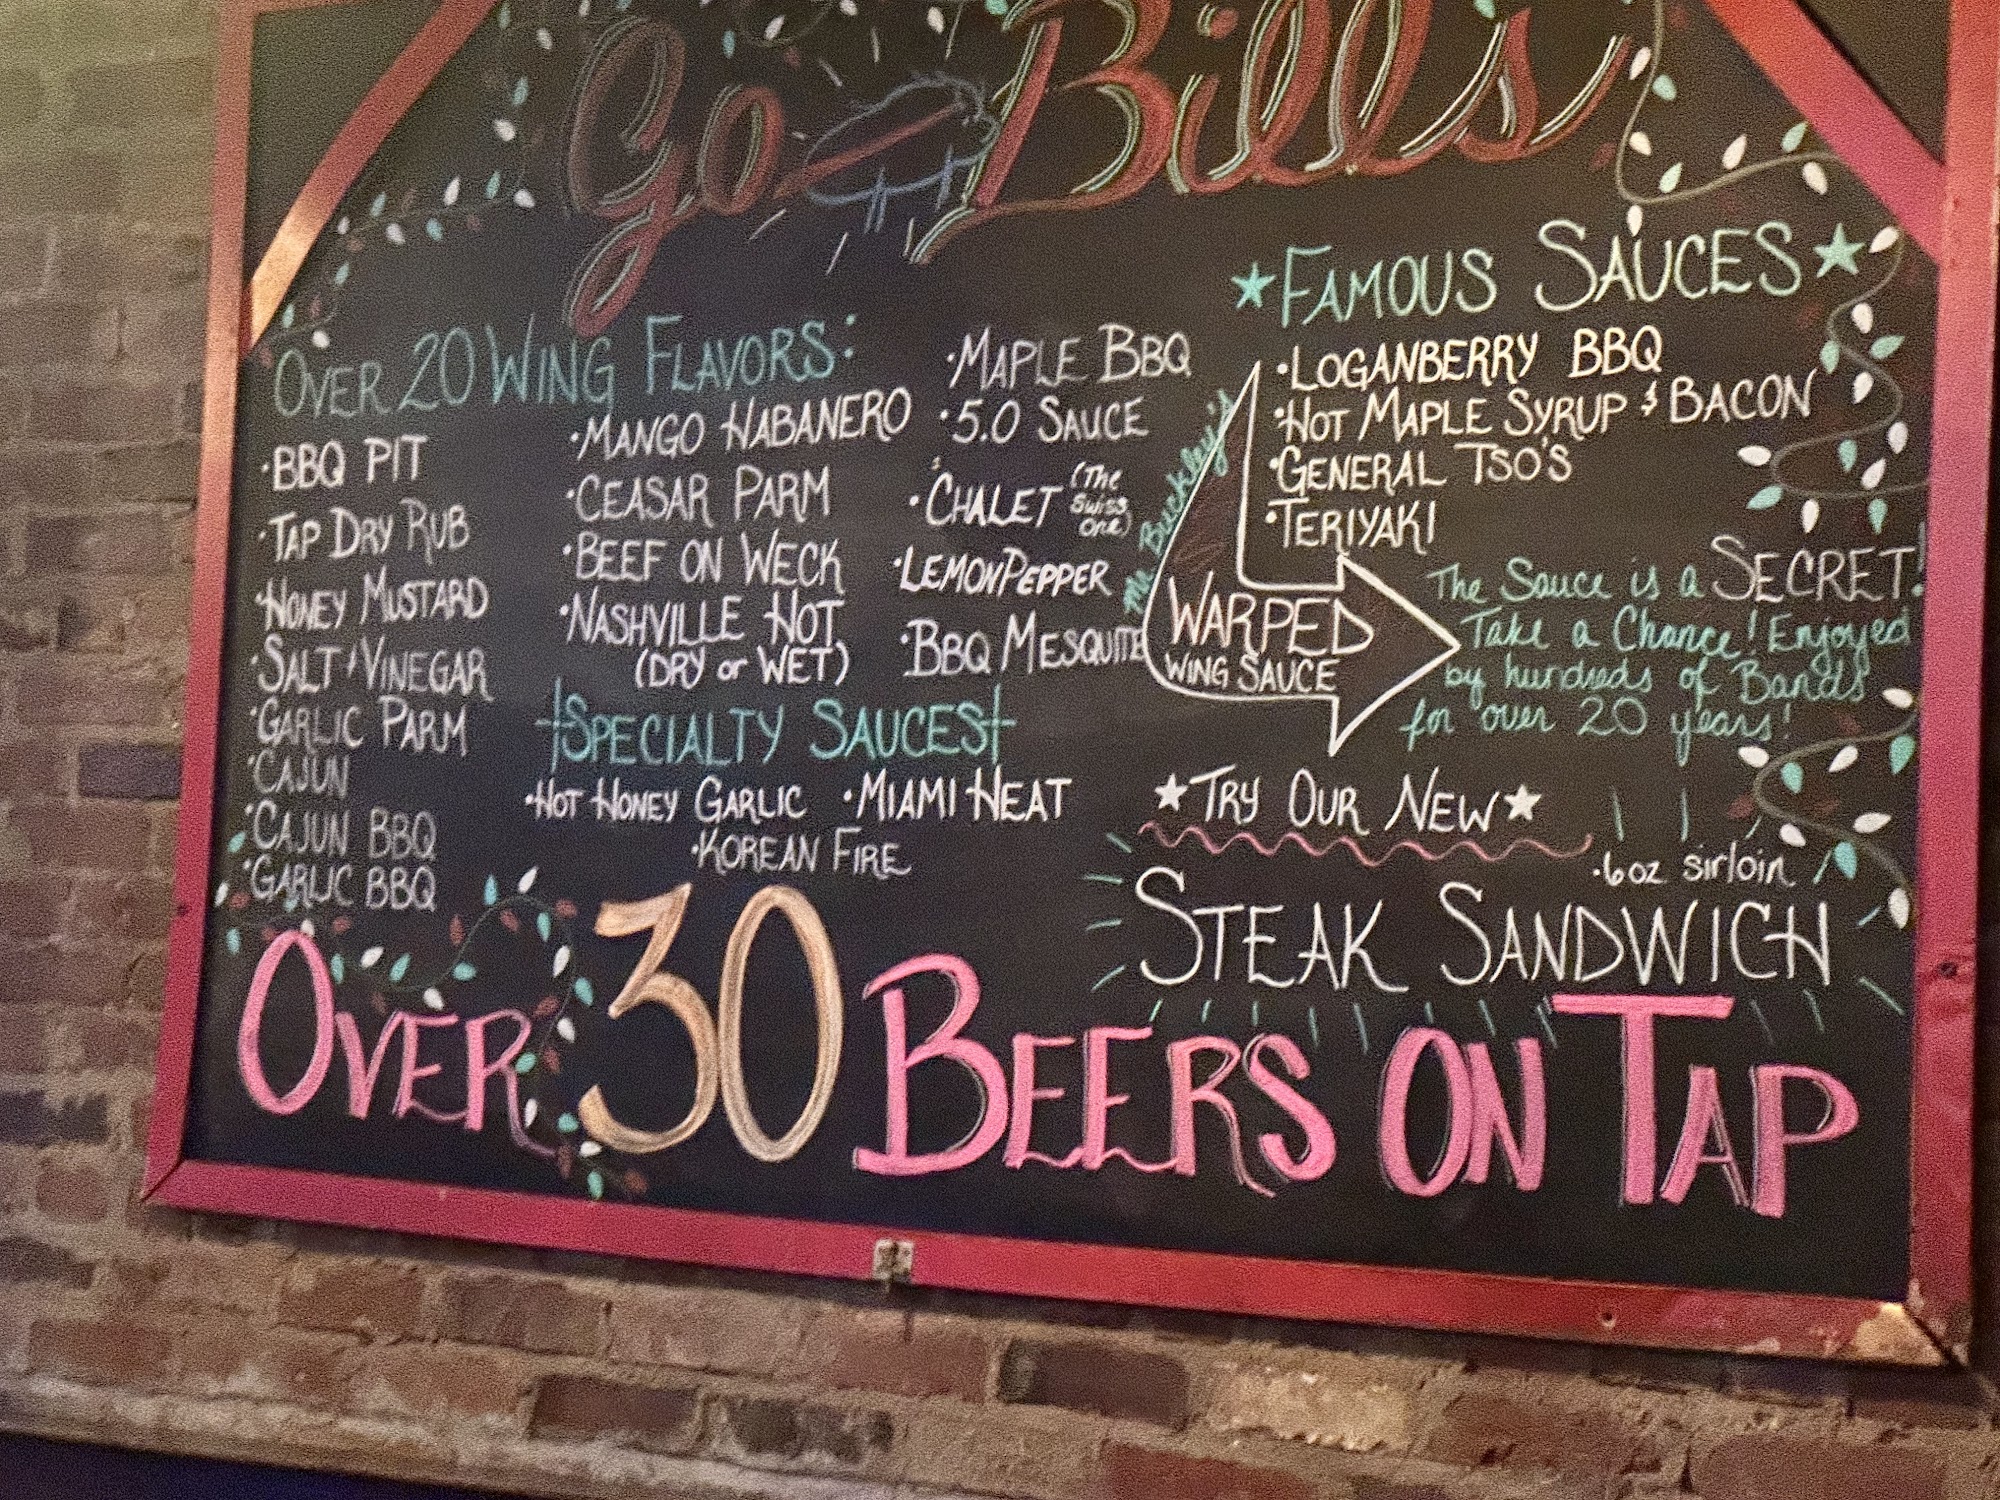 Go Bills
OVER 20 WING FLAVORS:
• BBQ PIT
• TAP DRY RUB
• HONEY MUSTARD
• SALT & VINEGAR
• GARLIC PARM
• CAJUN
• CAJUN BBQ
• GARLIC BBQ
• MANGO HABANERO
• CEASAR PARM
• BEEF ON WECK
• NASHVILLE HOT
(DRY or WET)
• MAPLE BBQ
• 5.0 SAUCE
• CHALET (The Swiss one)
• LEMON PEPPER
• BBQ MESQUITE
SPECIALTY SAUCES
• HOT HONEY GARLIC • MIAMI HEAT
• KOREAN FIRE
★ FAMOUS SAUCES ★
• LOGANBERRY BBQ
• HOT MAPLE SYRUP & BACON
• GENERAL TSO'S
• TERIYAKI
Mr. Buckley's
WARPED
WING SAUCE
The Sauce is a SECRET!
Take a Chance! Enjoyed
by hundreds of Bands
for over 20 years!
★ TRY OUR NEW ★
• 6 oz sirloin
STEAK SANDWICH
OVER 30 BEERS ON TAP